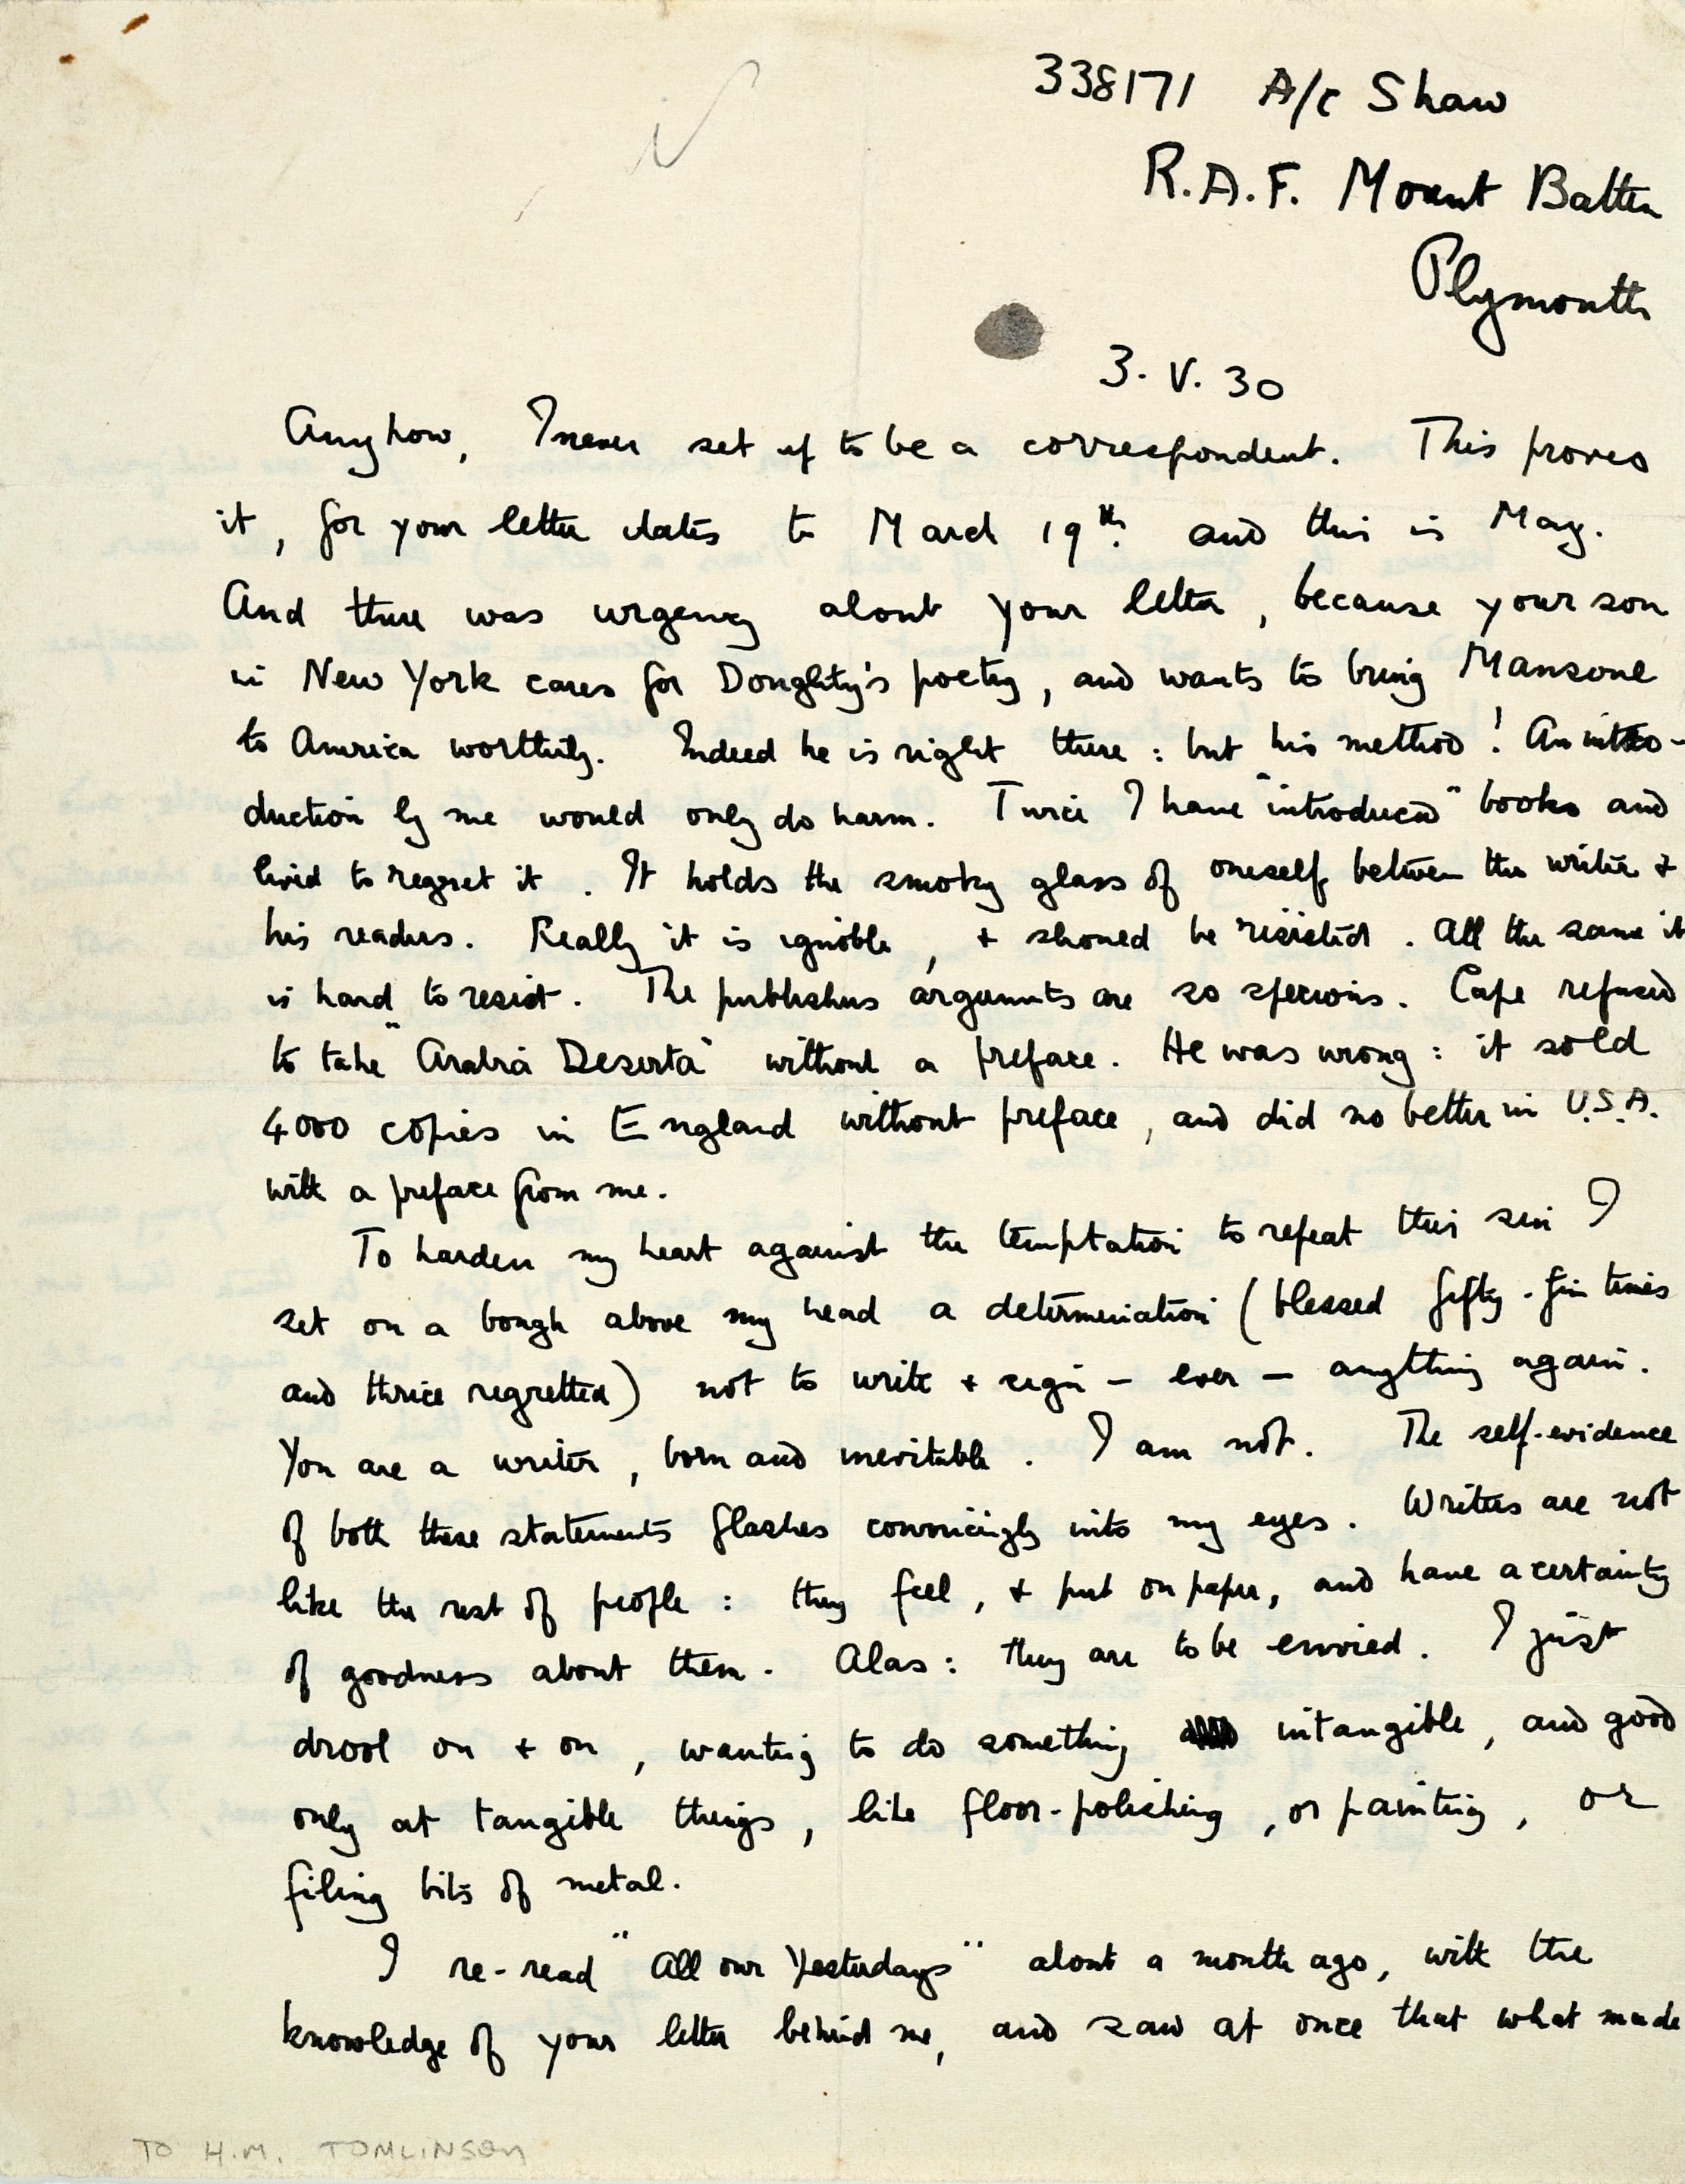 338171 A/c Shaw
R.A.F. Mount Batten
Plymouth
3. V. 30
Anyhow, I never set up to be a correspondent. This proves
it, for your letter dates to March 19th. and this is May.
And there was urgency about your letter, because your son
in New York cares for Doughty's poetry, and wants to bring Mansoul
to America worthily. Indeed he is right there: but his method! An intro-
duction by me would only do harm. Twice I have "introduced" books and
lived to regret it. It holds the smoky glass of oneself between the writer &
his readers. Really it is ignoble, & should be resisted. All the same it
is hard to resist. The publishers arguments are so specious. Cape refused
to take "Arabia Deserta" without a preface. He was wrong: it sold
4000 copies in England without preface, and did no better in U.S.A.
with a preface from me.
To harden my heart against the temptation to repeat this sin I
set on a bough above my head a determination (blessed fifty-five times
and thrice regretted) not to write & sign - ever - anything again.
You are a writer, born and inevitable. I am not. The self-evidence
of both these statements flashes convincingly into my eyes. Writers are not
like the rest of people: they feel, & put on paper, and have a certainty
of goodness about them. Alas: they are to be envied. I just
drool on & on, wanting to do something intangible, and good
only at tangible things, like floor-polishing, or painting, or
filing bits of metal.
I re-read "All our Yesterdays" about a month ago, with the
knowledge of your letter behind me, and saw at once that what made
TO H.M. TOMLINSON